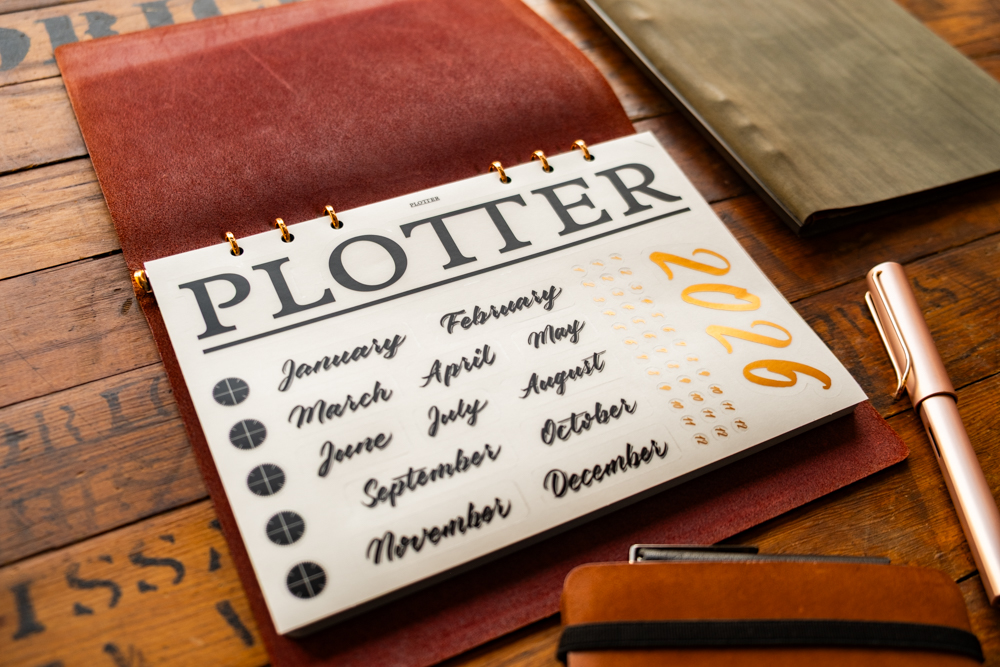 PLOTTER
PLOTTER
January February
March April May
June July August
September October
November December
2026